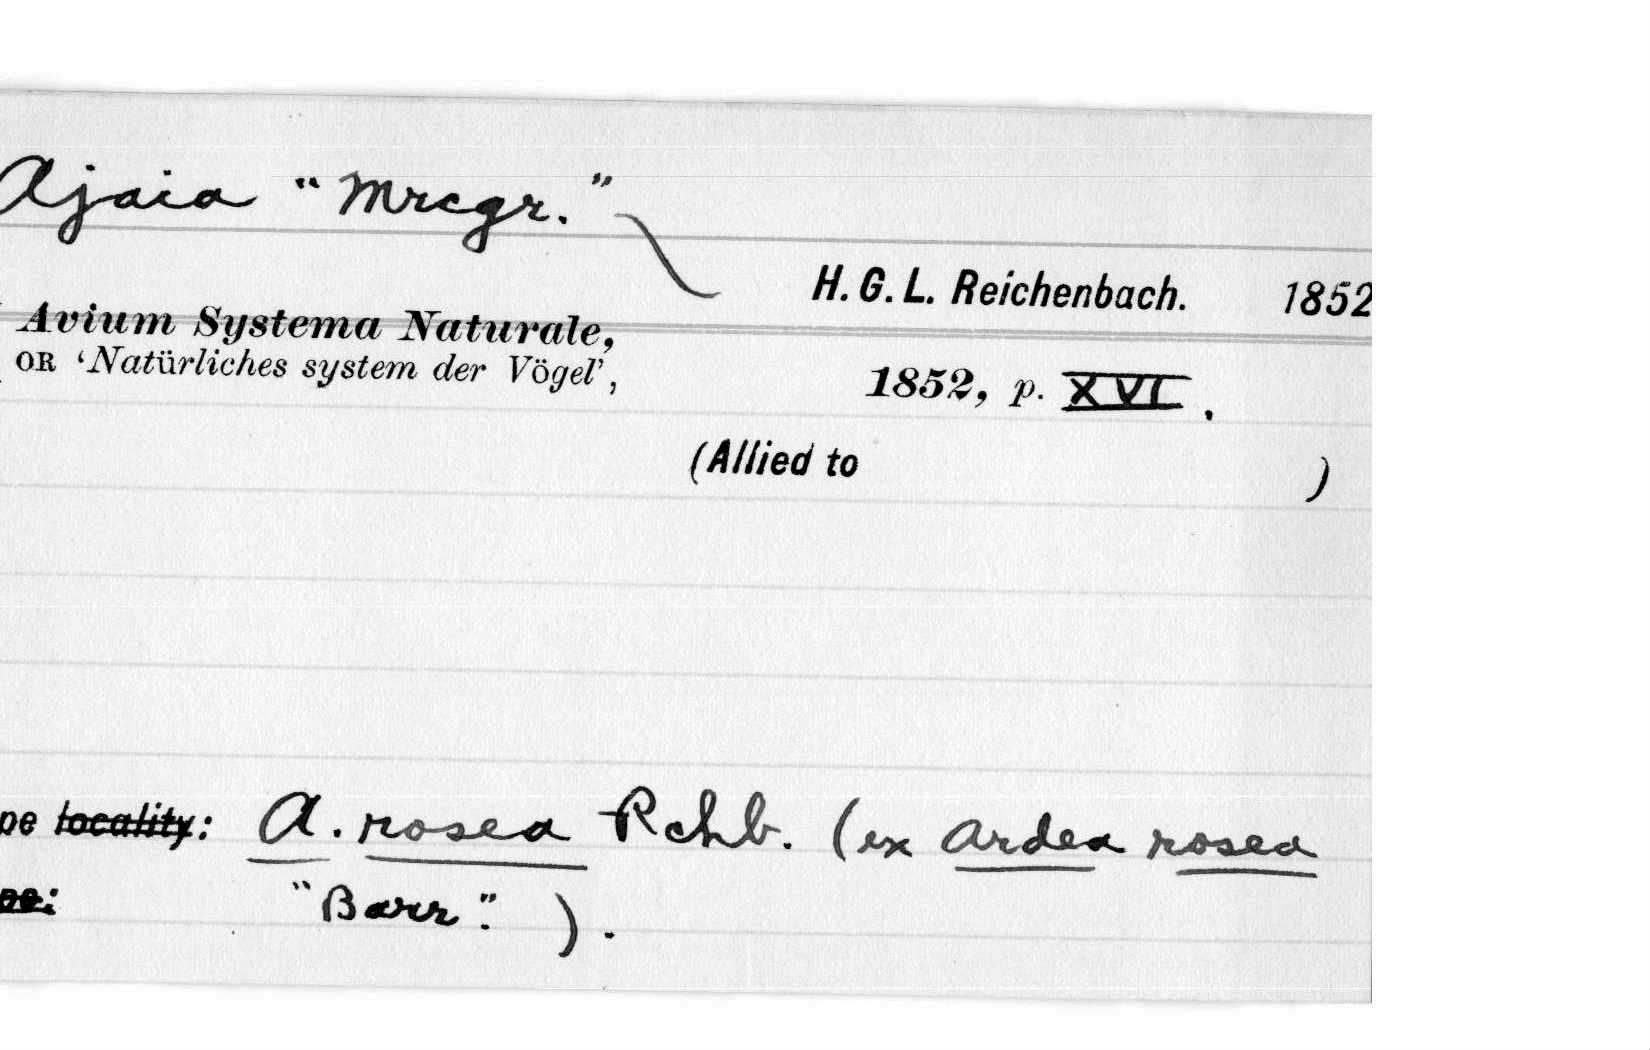 Ajaia "Mrcgr."
H. G. L. Reichenbach. 1852
Avium Systema Naturale,
OR 'Natürliches system der Vögel',
1852, p. XVI.
(Allied to )
pe locality: A. rosea Rchb. (ex Ardea rosea
pe: "Barr".).